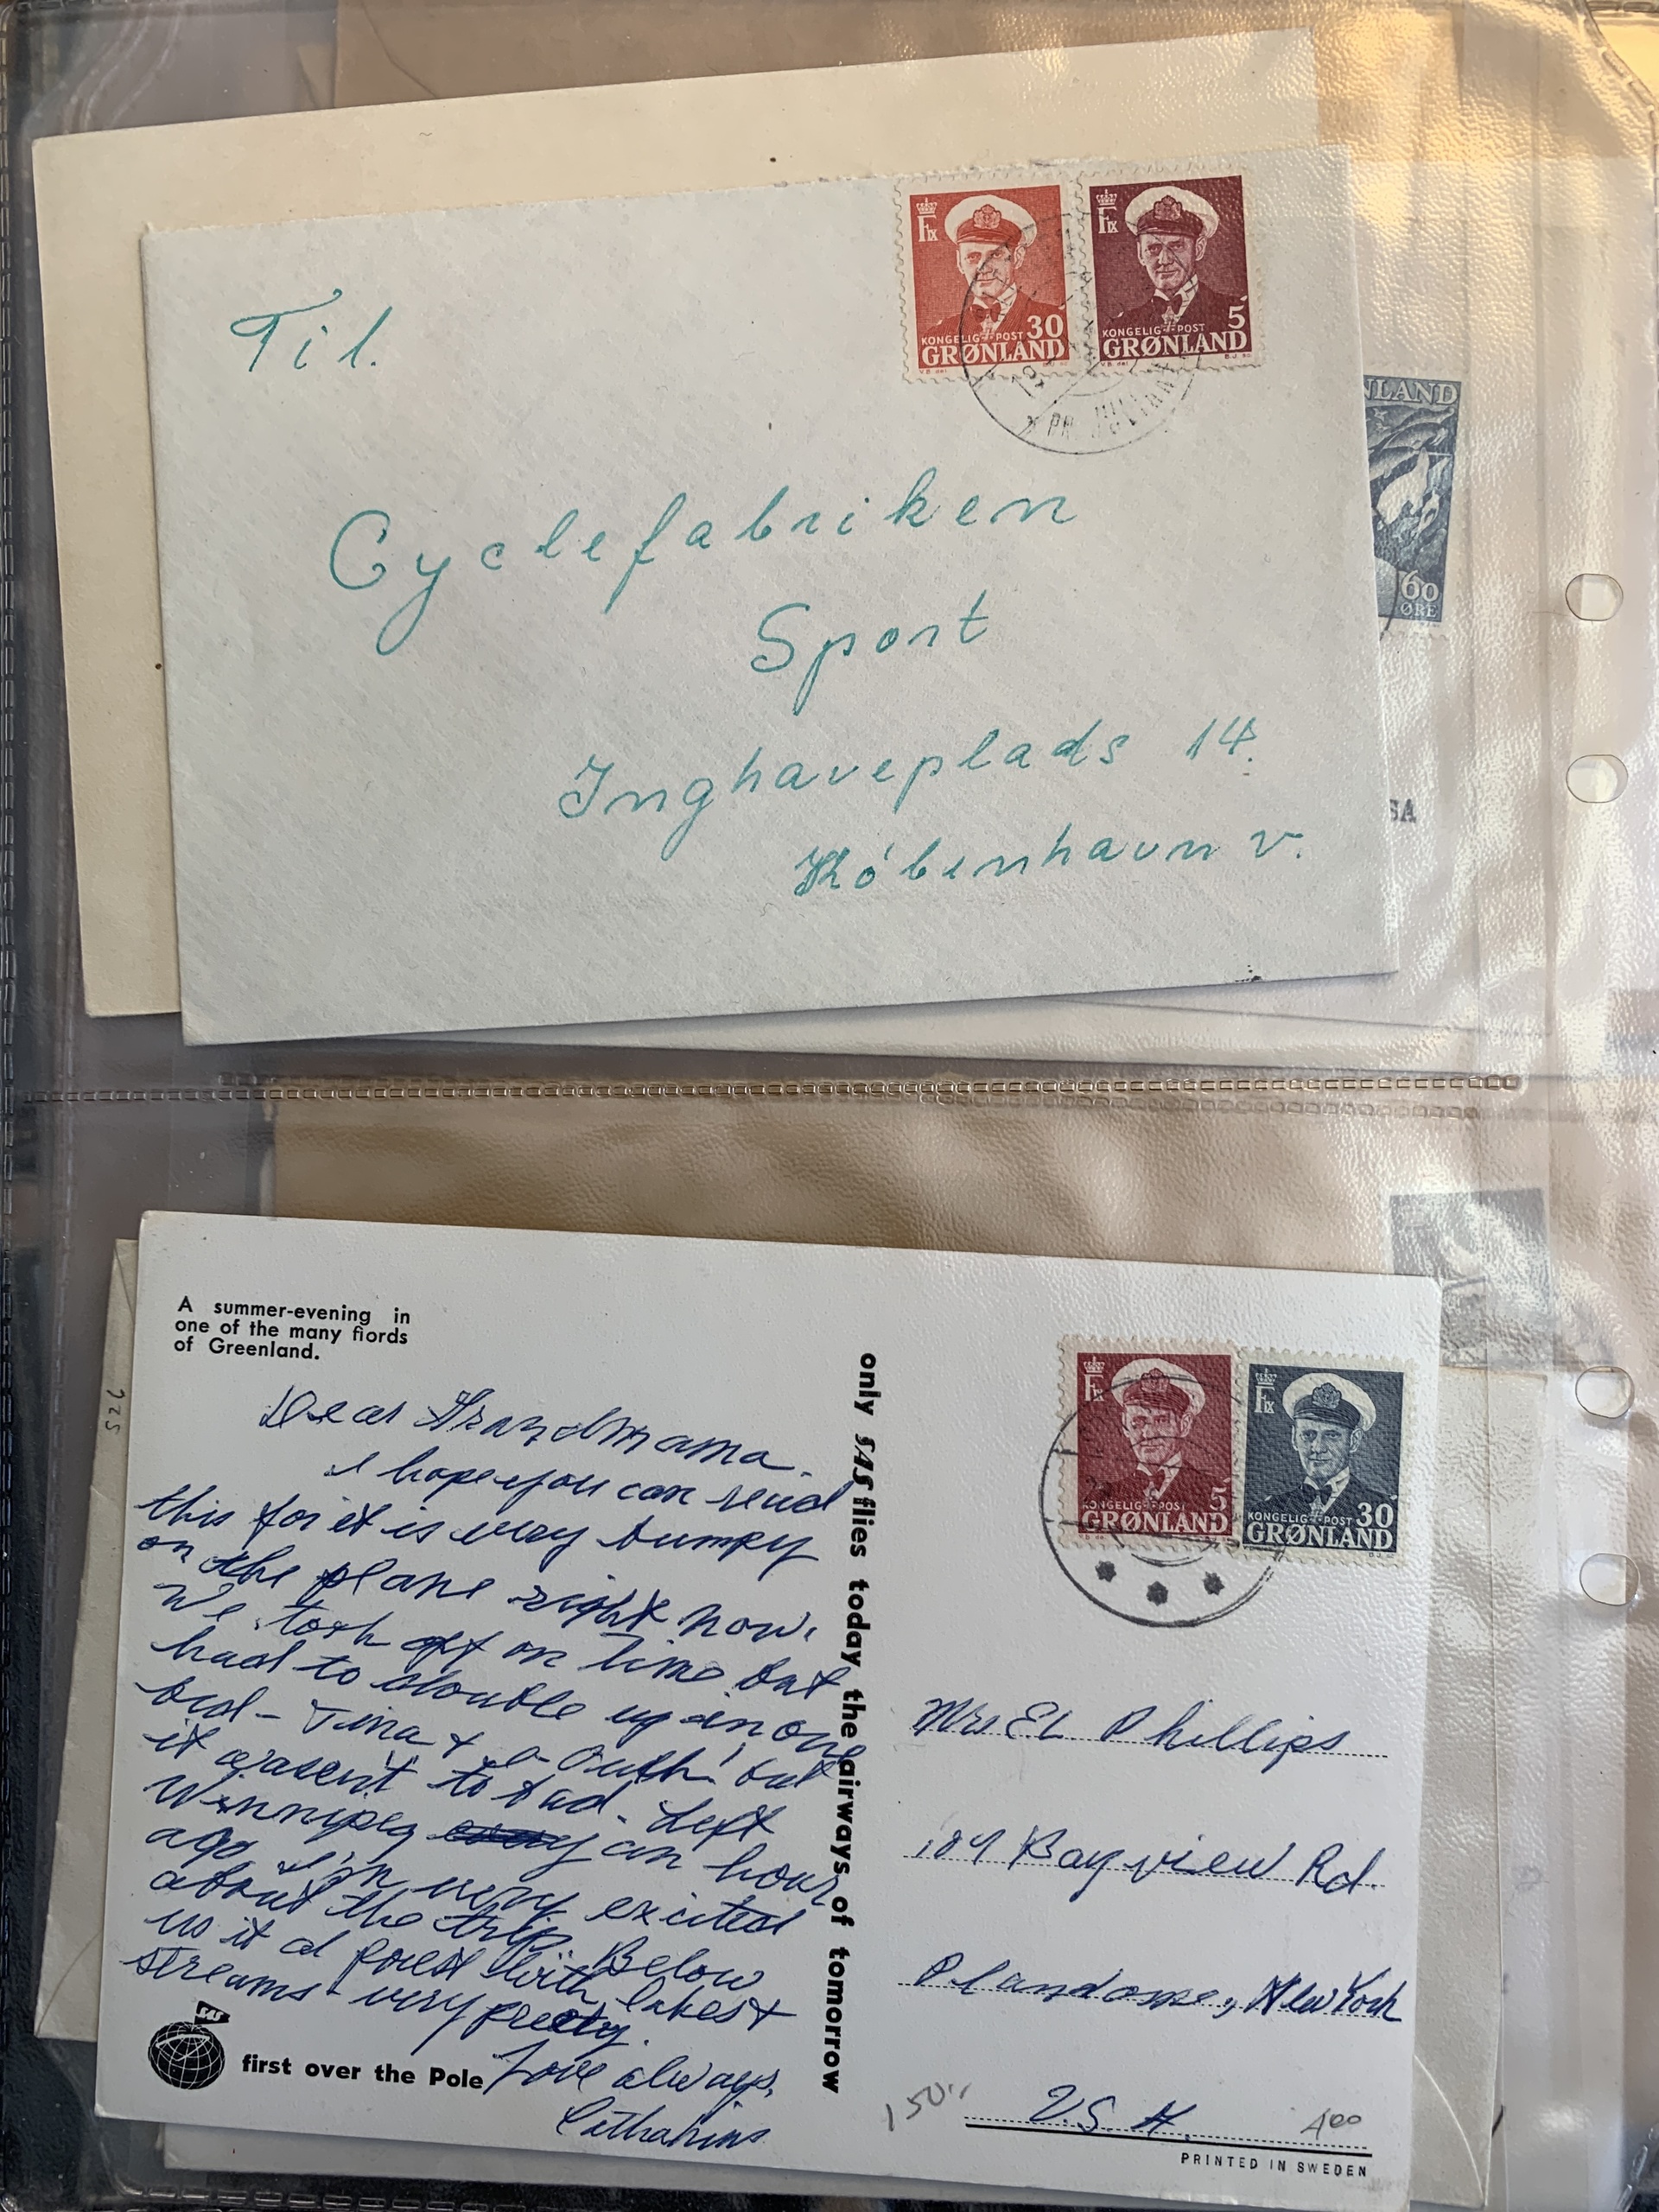 Til.
Cyclefabriken
Sport
Inghaveplads 14.
København v.
FIX
30
KONGELIG POST
GRØNLAND
FIX
5
KONGELIG POST
GRØNLAND
NLAND
60
ØRE
SA
A summer-evening in
one of the many fiords
of Greenland.
Dear Grandmama.
I hope you can read
this for it is very bumpy
on the plane right now.
We took off on time but
had to double up in one
bed - Tina & I - Ouch! but
it wasen't to bad. Left
Winnipeg an hour
ago I'm very excited
about the trip. Below
us it a forest with lakes &
streams - very pretty.
Love always,
first over the Pole
SAS
only SAS flies today the airways of tomorrow
FIX
5
KONGELIG POST
GRØNLAND
FIX
30
KONGELIG POST
GRØNLAND
Mrs EL Phillips
Bayview Rd.
Plandome, New York
U.S.A.
150
400
PRINTED IN SWEDEN